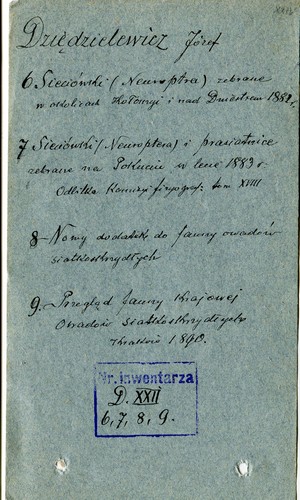 XXII
Dziędzielewicz Józef
6 Sieciówki (Neuroptra) zebrane
w okolicach Kołomyi i nad Dniestrem 1882 r.
7 Sieciówki (Neuroptera) i prasiatnice
zebrane na Pokuciu w lecie 1883 r.
Odbitka Komisyi fizyograf. tom XVIII
8 Nowy dodatek do fauny owadów
siatkoskrzydłych
9. Przegląd fauny Krajowej
Owadów siatkoskrzydłych
Kraków 1890.
Nr. inwentarza
D. XXII
6, 7, 8, 9.